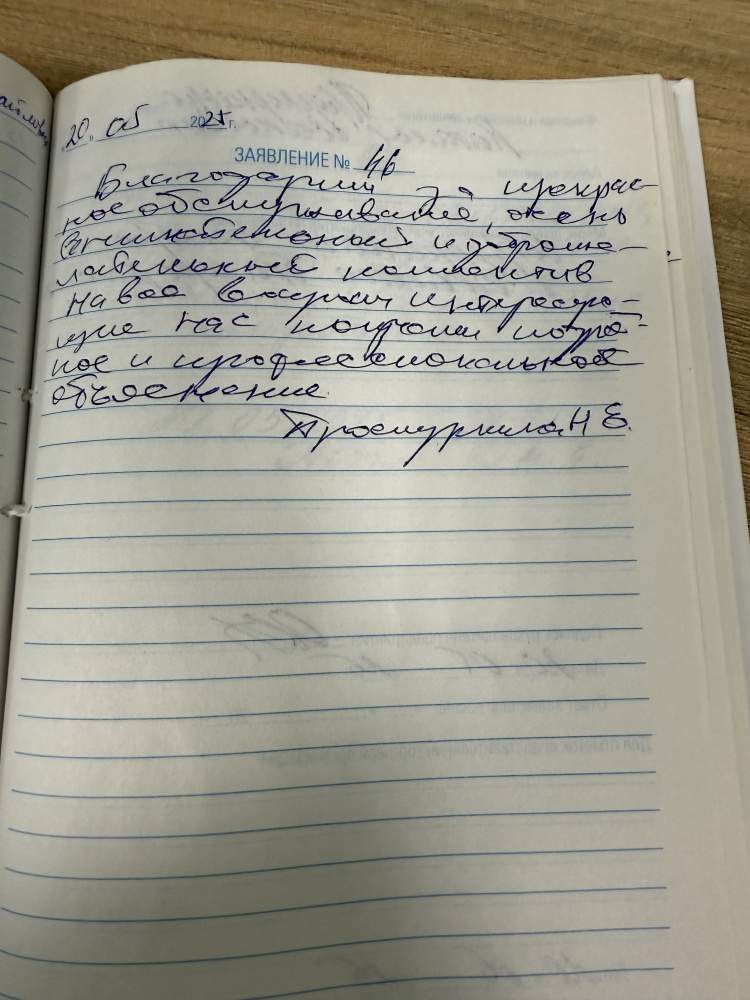 "20" 05 2025 г.
ЗАЯВЛЕНИЕ № 46
Благодарим за прекрас-
ное обслуживание, очень
внимательный и доброже-
лательный коллектив
На все вопросы интересую-
щие нас получили подроб-
ное и профессиональное
объяснение.
Н Е.